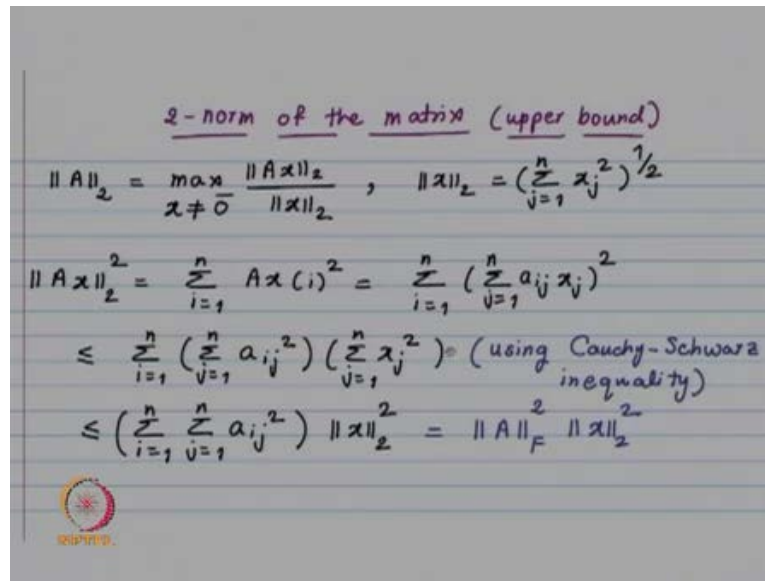 2-norm of the matrix (upper bound)
‖A‖₂ = max x≠0̄ ‖Ax‖₂ / ‖x‖₂ , ‖x‖₂ = (∑_{j=1}^{n} x_j²)^{1/2}
‖Ax‖₂² = ∑_{i=1}^{n} Ax(i)² = ∑_{i=1}^{n} (∑_{j=1}^{n} a_{ij} x_j)²
≤ ∑_{i=1}^{n} (∑_{j=1}^{n} a_{ij}²) (∑_{j=1}^{n} x_j²) (using Cauchy-Schwarz
inequality)
≤ (∑_{i=1}^{n} ∑_{j=1}^{n} a_{ij}²) ‖x‖₂² = ‖A‖_F² ‖x‖₂²